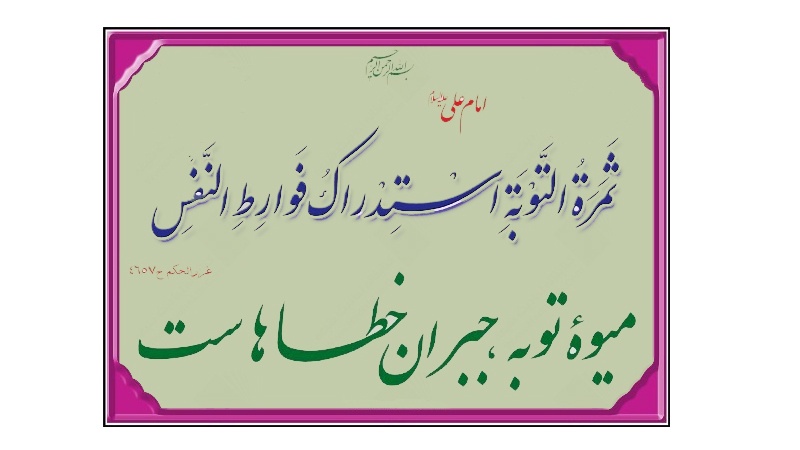 بسم الله الرحمن الرحیم
امام علی علیه‌السلام
ثَمَرَةُ التَّوْبَةِ اسْتِدْراكُ فَوارِطِ النَّفْسِ
غررالحکم ح٤٦٥٧
میوهٔ توبه، جبران خطاهاست